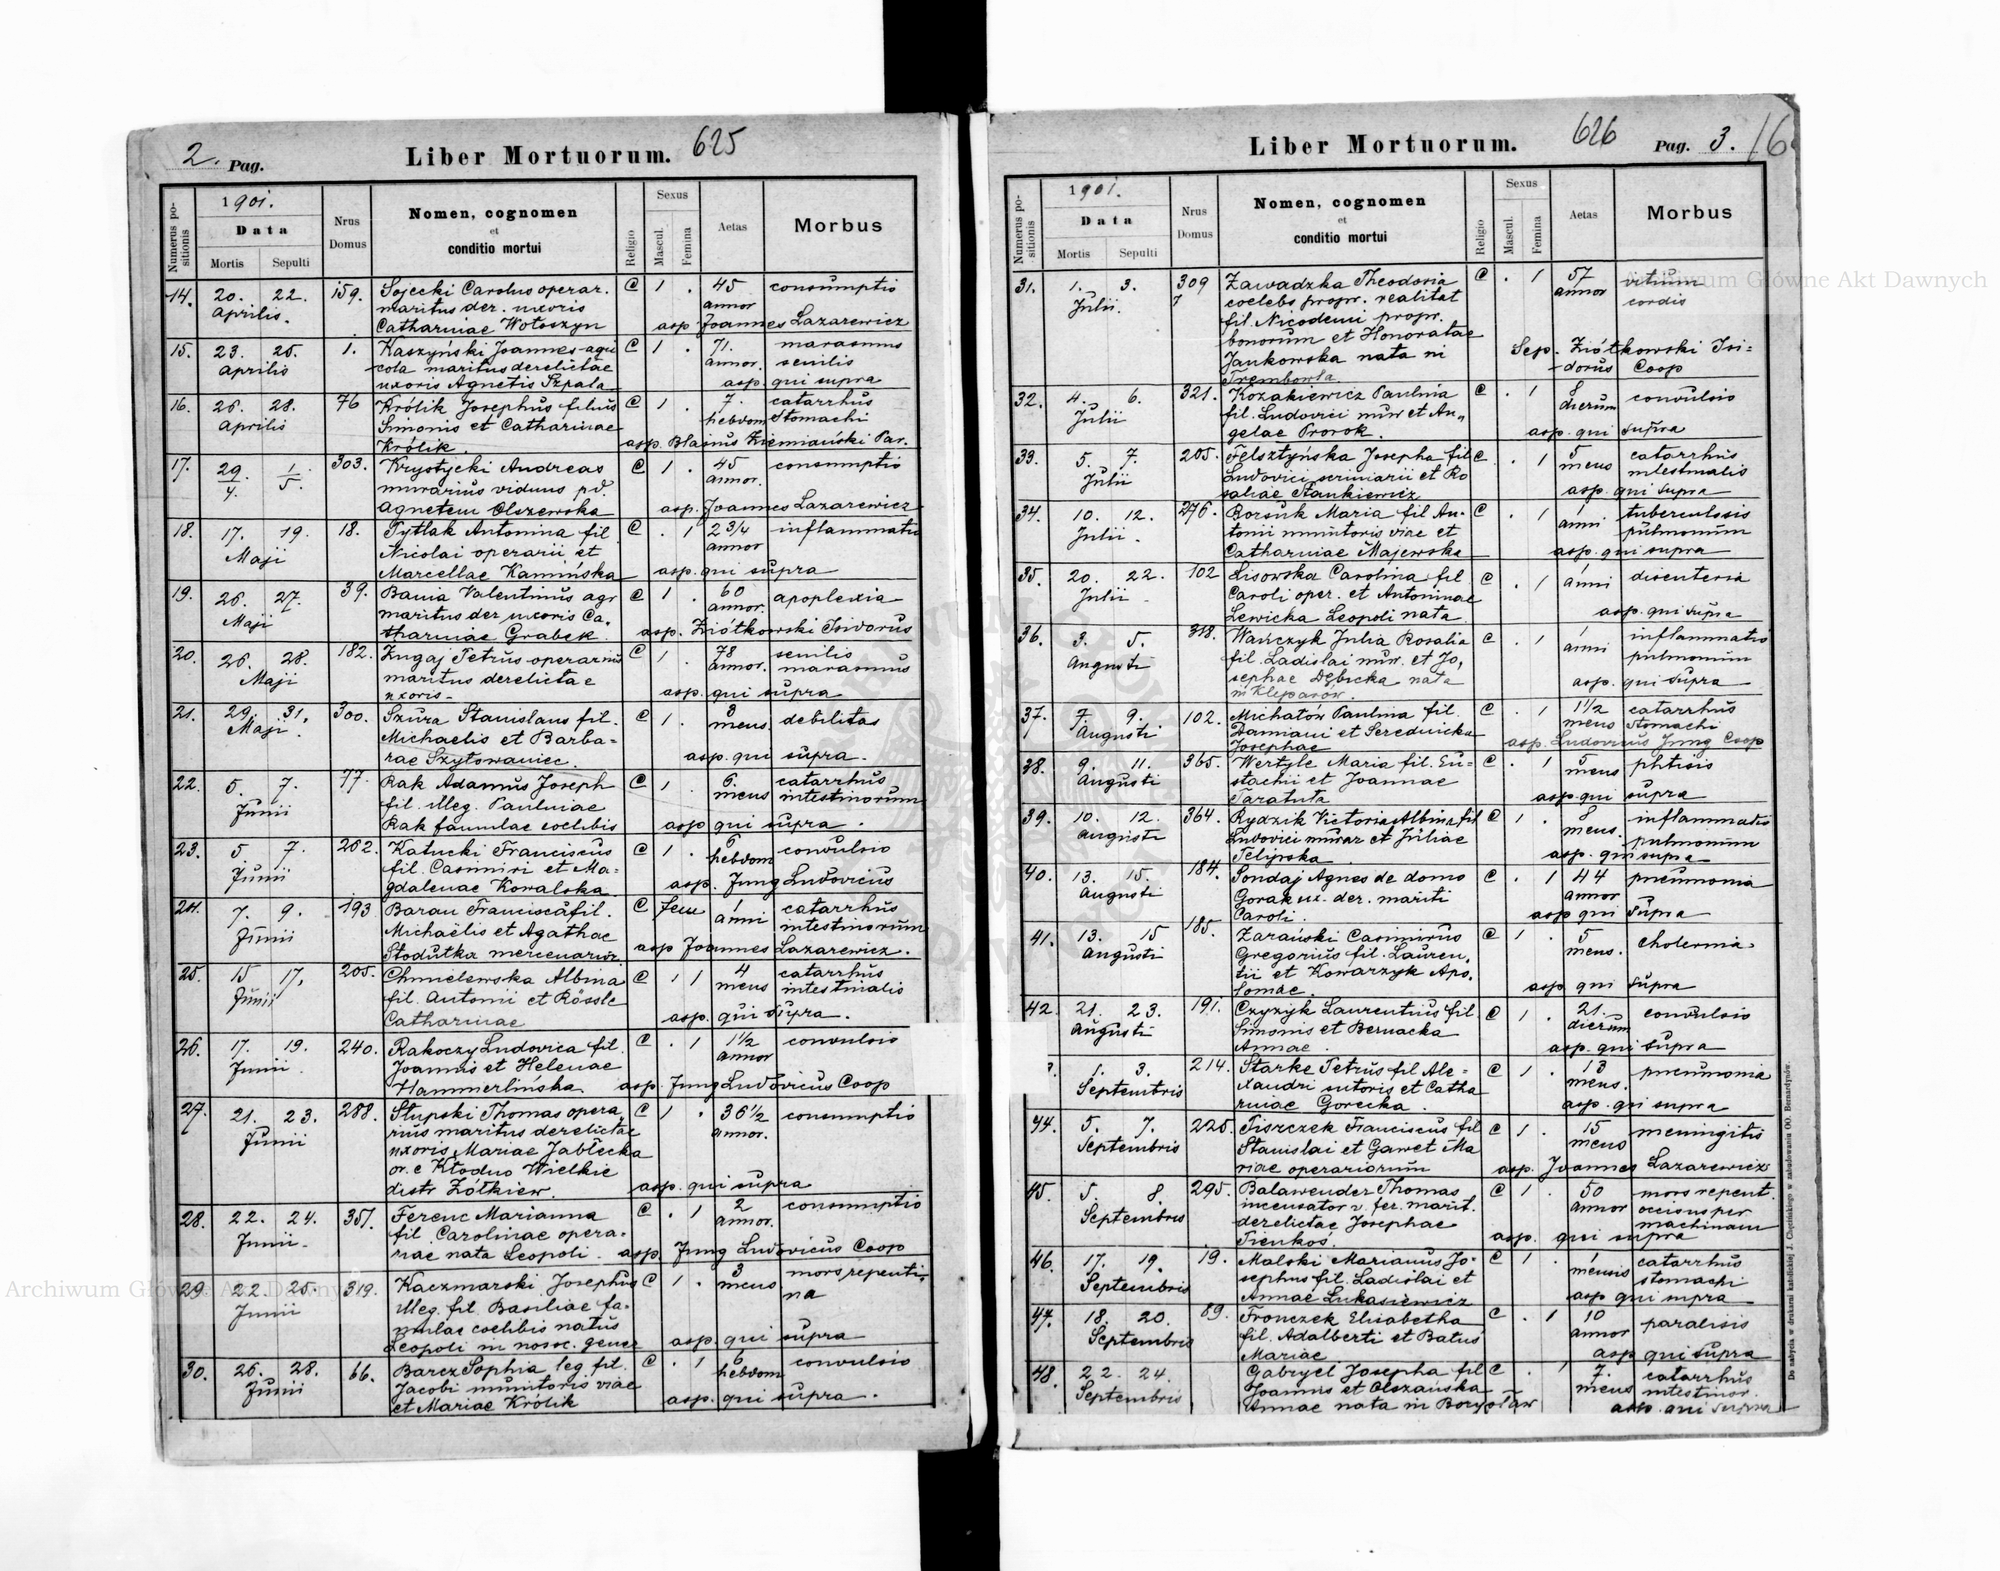 2. Pag.
Liber Mortuorum. 625
Numerus positionis
1901.
Data
Mortis Sepulti
Nrus Domus
Nomen, cognomen
et
conditio mortui
Religio
Sexus
Mascul. Femina
Aetas
Morbus
14. 20. 22. 159. Sojecki Carolus operar. C 1 . 45 consumptio
Aprilis. maritus der. uxoris annor
Catharinae Wołoszyn asp. Joannes Lazarewicz
15. 23. 25. 1. Kaszyński Joannes agri C 1 . 71. marasmus
Aprilis cola maritus derelictae annor. senilis
uxoris Agnetis Szpala asp. qui supra
16. 26. 28. 76 Królik Josephus filius C 1 . 7. catarrhus
Aprilis Simonis et Catharinae hebdom stomachi
Królik. asp. Blasius Ziemiański Par.
17. 29/4. 1/5. 303. Krystycki Andreas C 1 . 45 consumptio
murarius viduus pd. annor.
Agnetem Olszewska asp. Joannes Lazarewicz
18. 17. 19. 18. Pytlak Antonina fil C . 1 2 3/4 inflammatio
Maji Nicolai operarii et annor
Marcellae Kamińska asp. qui supra
19. 26. 27. 39. Bania Valentinus agr C 1 . 60 apoplexia
Maji maritus der uxoris Ca- annor.
tharinae Grabek. asp. Ziółkowski Isidorus
20. 26. 28. 182. Zugaj Petrus operarius C 1 . 78 senilis
Maji maritus derelictae annor. marasmus
uxoris- asp. qui supra
21. 29. 31. 300. Szura Stanislaus fil. C 1 . 3 debilitas
Maji Michaelis et Barba= mens.
rae Szytowaniec. asp. qui supra.
22. 5. 7. 77. Rak Adamus Joseph C 1 . 6. catarrhus
Junii fil. illeg. Paulinae mens intestinorum
Rak famulae coelibis asp qui supra.
23. 5 7. 262. Katucki Franciscus C 1 . 6 convulsio
Junii fil. Casimiri et Ma= hebdom
gdalenae Kowalska asp. Jung Ludovicus
24. 7. 9. 193 Baran Francisca fil. C Fem 1 catarrhus
Junii Michaelis et Agathae anni intestinorum
Stodułka mercenarior. asp Joannes Lazarewicz.
25. 15 17. 205. Chmielewska Albina C . 1 4 catarrhus
Junii fil. Antonii et Rössle mens intestinalis
Catharinae asp. qui supra.
26. 17. 19. 240. Rakoczy Ludovica fil. C . 1 1 1/2 convulsio
Junii Joannis et Helenae annor
Hammerlińska asp. Jung Ludovicus Coop
27. 21. 23. 288. Słupski Thomas opera C 1 . 36 1/2 consumptio
Junii rius maritus derelictae annor.
uxoris Mariae Jabłecka
or. e Kłodno Wielkie
distr Żółkiew. asp. qui supra
28. 22. 24. 357. Ferenc Marianna C . 1 2 consumptio
Junii. fil. Carolinae opera= annor.
riae nata Leopoli. asp. Jung Ludovicus Coop
29 22. 25. 319. Kaczmarski Josephus C 1 . 3 mors repenti-
Junii illeg. fil. Basiliae fa= mens na
mulae coelibis natus
Leopoli in nosoc. gener asp. qui supra
30. 26. 28. 66. Barcz Sophia leg fil. C . 1 6 convulsio
Junii Jacobi munitoris viae hebdom
et Mariae Królik asp. qui supra.
Liber Mortuorum. 626 Pag. 3.
Numerus positionis
1901.
Data
Mortis Sepulti
Nrus Domus
Nomen, cognomen
et
conditio mortui
Religio
Sexus
Mascul. Femina
Aetas
Morbus
31. 1. 3. 309 Zawadzka Theodosia C . 1 57 vitium
Julii. 7 coelebs propr. realitat annor cordis
fil. Nicodemi propr.
bonorum et Honoratae
Jankowska nata in Sep. Ziółkowski Isi=
Trembowla dorus Coop
32. 4. 6. 321. Kozakiewicz Paulina C . 1 8 convulsio
Julii fil. Ludovici mur et An„ dierum
gelae Prorok. asp. qui supra
33. 5. 7. 205. Felsztyńska Josepha fil C . 1 5 catarrhus
Julii Ludovici scriniarii et Ro mens intestinalis
saliae Stankiewicz asp. qui supra
34. 10. 12. 276. Borsuk Maria fil An- C . 1 1 tuberculosis
Julii. tonii munitoris viae et anni pulmonum
Catharinae Majewska asp. qui supra
35. 20. 22. 102 Lisowska Carolina fil C . 1 1 disenteria
Julii Caroli oper. et Antoninae anni
Lewicka Leopoli nata asp. qui supra
36. 3. 5. 318. Wańczyk Julia Rosalia C . 1 1 inflammatio
Augusti fil. Ladislai mur. et Jo, anni pulmonum
sephae Dębicka nata asp. qui supra
in Kleparow.
37. 7. 9. 102. Michałów Paulina fil. C . 1 1 1/2 catarrhus
Augusti Damiani et Serednicka mens stomachi
Josephae asp. Ludovicus Jung Coop
38. 9. 11. 365. Wertyle Maria fil. Eu= C . 1 5 phtisis
Augusti stachii et Joannae mens
Taratuta asp. qui supra
39. 10. 12. 364. Rydzik Victoria Albina fil C 1 . 8 inflammatio
Augusti Ludovici murar et Juliae mens. pulmonum
Telipska asp. qui supra
40. 13. 15. 184. Sondaj Agnes de domo C . 1 44 pneumonia
Augusti Gorak ux. der. mariti annor
Caroli. asp qui supra
41. 13. 15 185. Zarański Casimirus C 1 . 5 cholernia.
Augusti Gregorius fil. Lauren, mens.
tii et Kowarzyk Apo,
loniae. asp qui supra
42. 21. 23. 191. Czyzyk Laurentius fil C 1 . 21. convulsio
Augusti Simonis et Bernacka dierum
Annae. asp. qui supra
1. 3. 214. Starke Petrus fil Ale= C 1 . 13 pneumonia
Septembris xandri sutoris et Catha mens.
rinae Gorecka. asp. qui supra
44. 5. 7. 225. Piszczek Franciscus fil C 1 . 15 meningitis
Septembris Stanislai et Gaweł Ma mens
riae operariorum asp. Joannes Lazarewicz
45. 5. 8. 295. Balawender Thomas C 1 . 50 mors repent.
Septembris incensator v. fer. marit. annor occisus per
derelictae Josephae machinam
Pieńkoś. asp. qui supra
46. 17. 19. 19. Malski Marianus Jo= C 1 . 1 catarrhus
Septembris sephus fil. Ladislai et mensis stomachi
Annae Lukasiewicz asp qui supra
47. 18. 20. 89. Fronczek Elisabetha C . 1 10 paralisis
Septembris fil. Adalberti et Batus annor
Mariae asp qui supra
48. 22. 24. Gabryel Josepha fil C . 1 7. catarrhus
Septembris Joannis et Olszańska mens intestinor.
Annae nata in Borysław asp. qui supra
Do nabycia w drukarni katolickiej J. Chęcińskiego w zabudowaniu OO. Bernardynów.
Archiwum Główne Akt Dawnych
Archiwum Główne Akt Dawnych